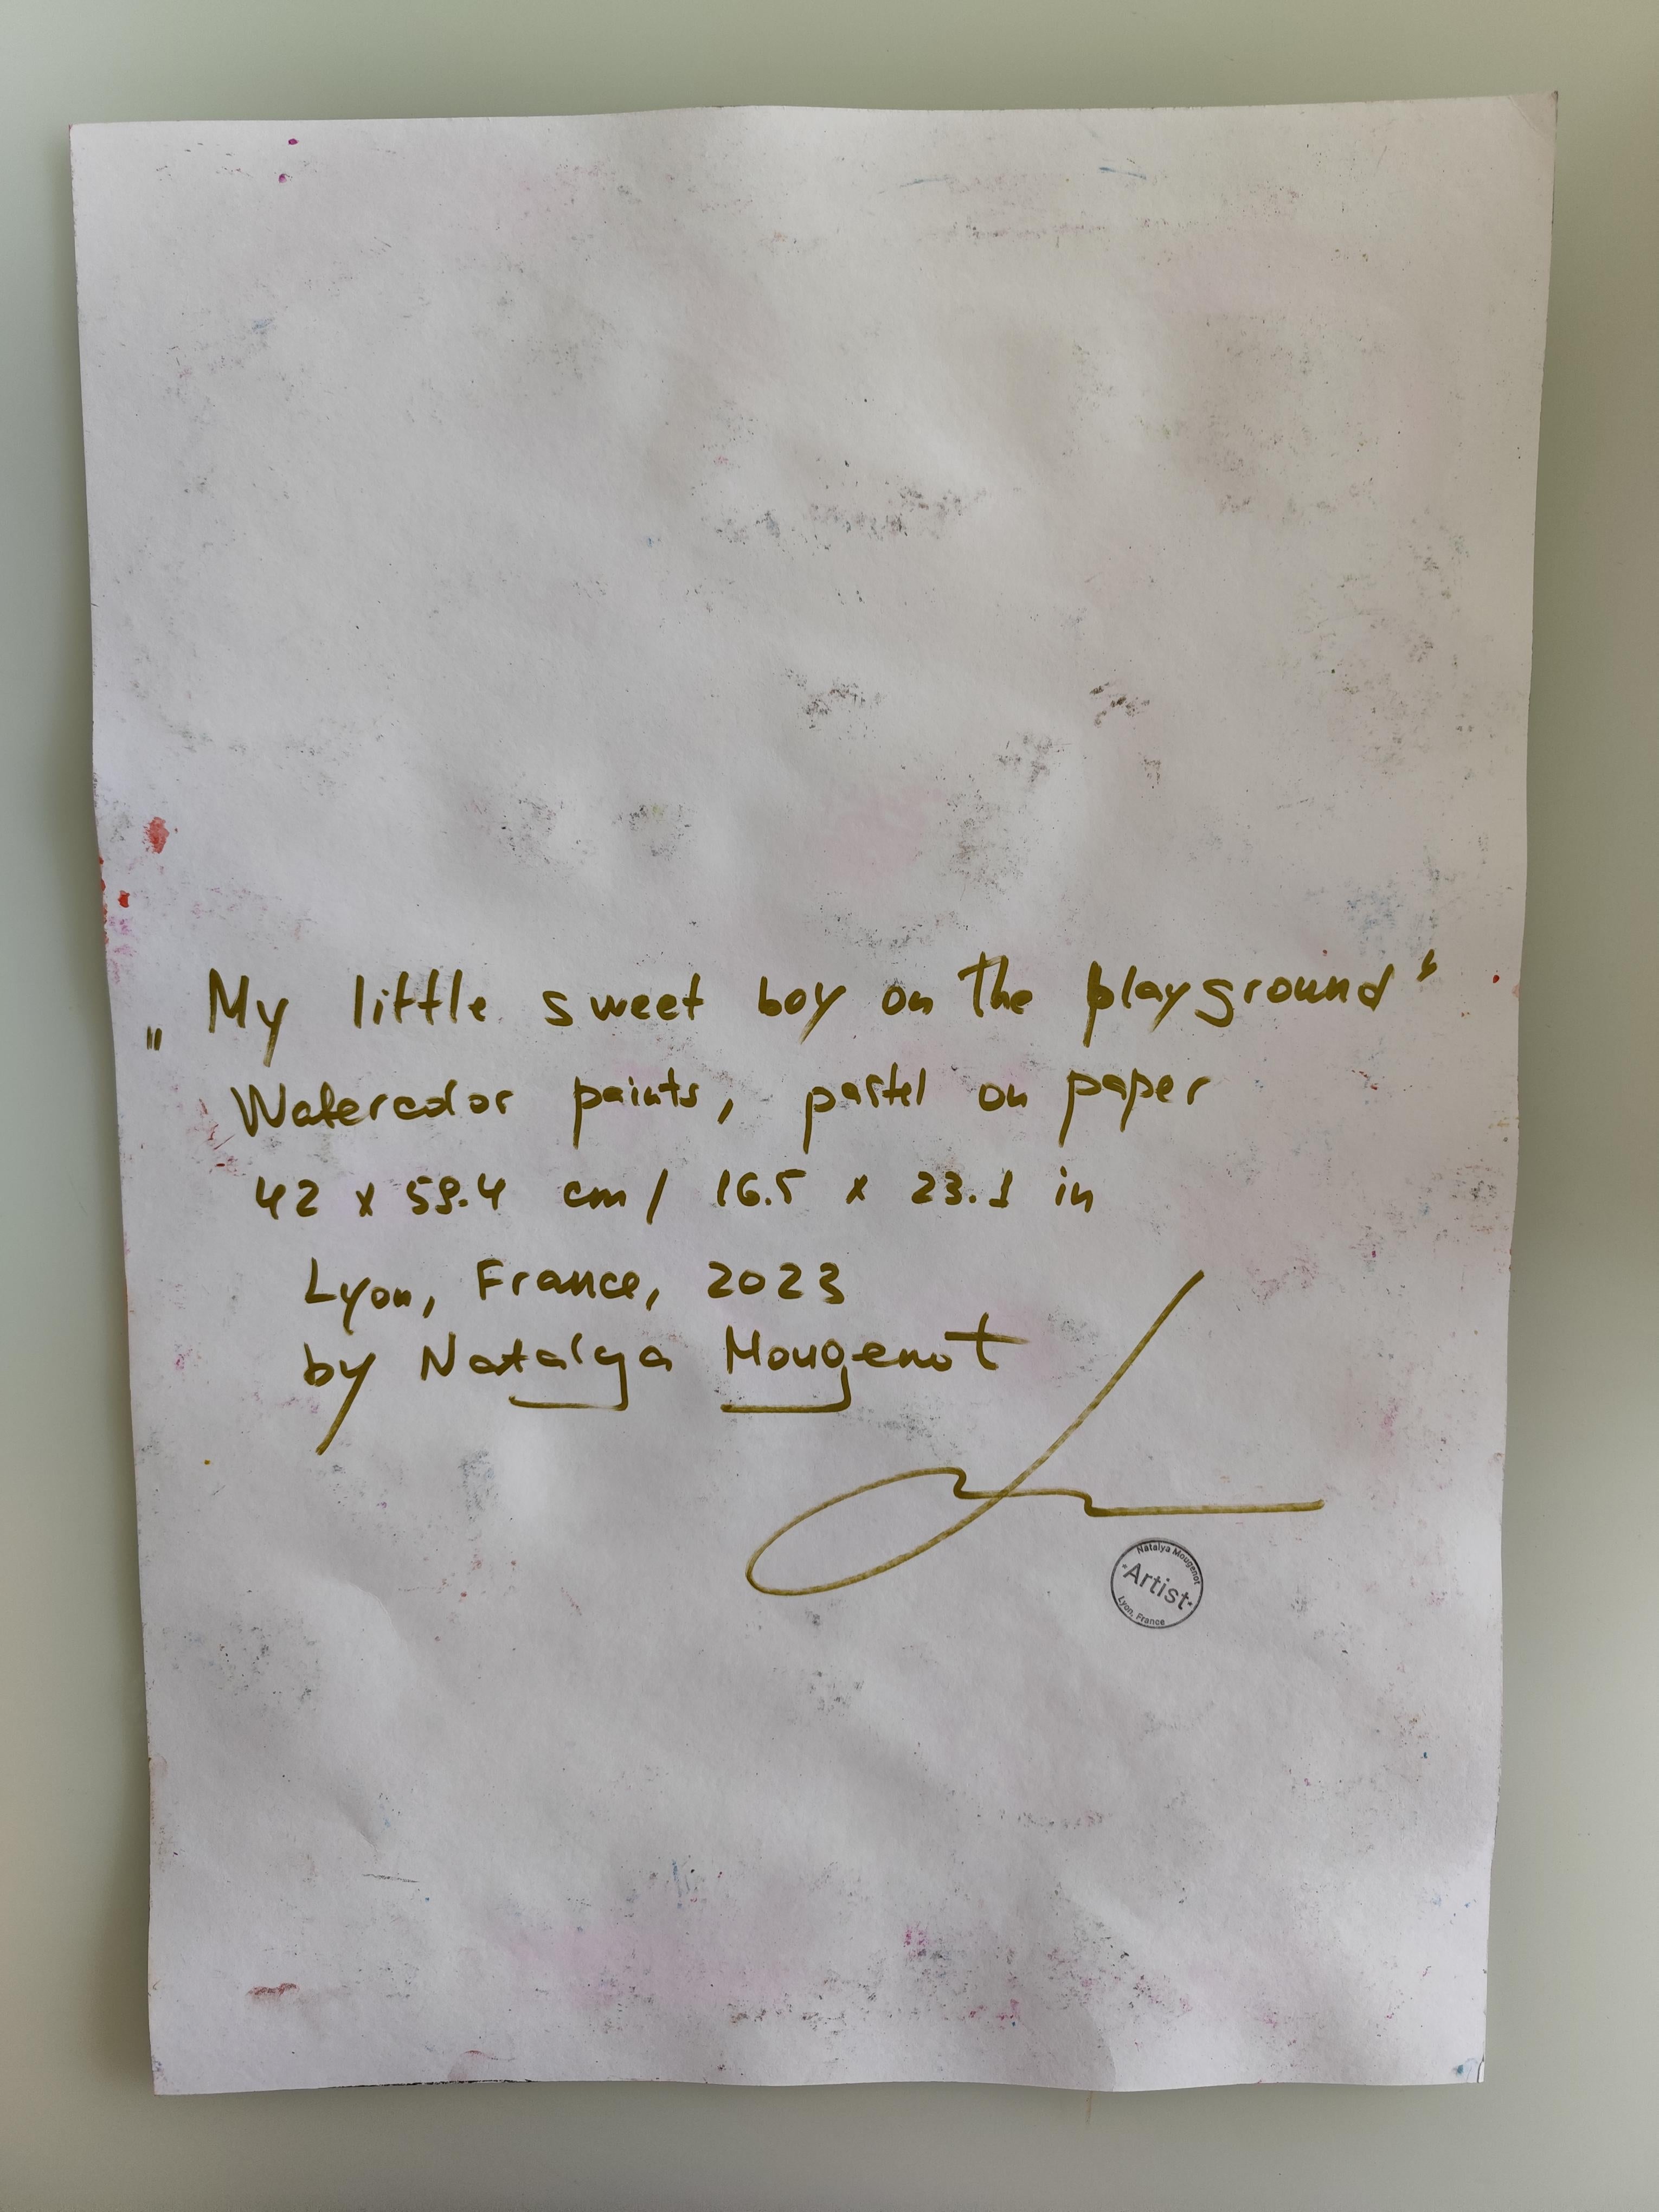 „My little sweet boy on the playground“
Watercolor paints, pastel on paper
42 x 59.4 cm / 16.5 x 23.1 in
Lyon, France, 2023
by Natalya Mougenot
Natalya Mougenot
·Artist·
Lyon, France